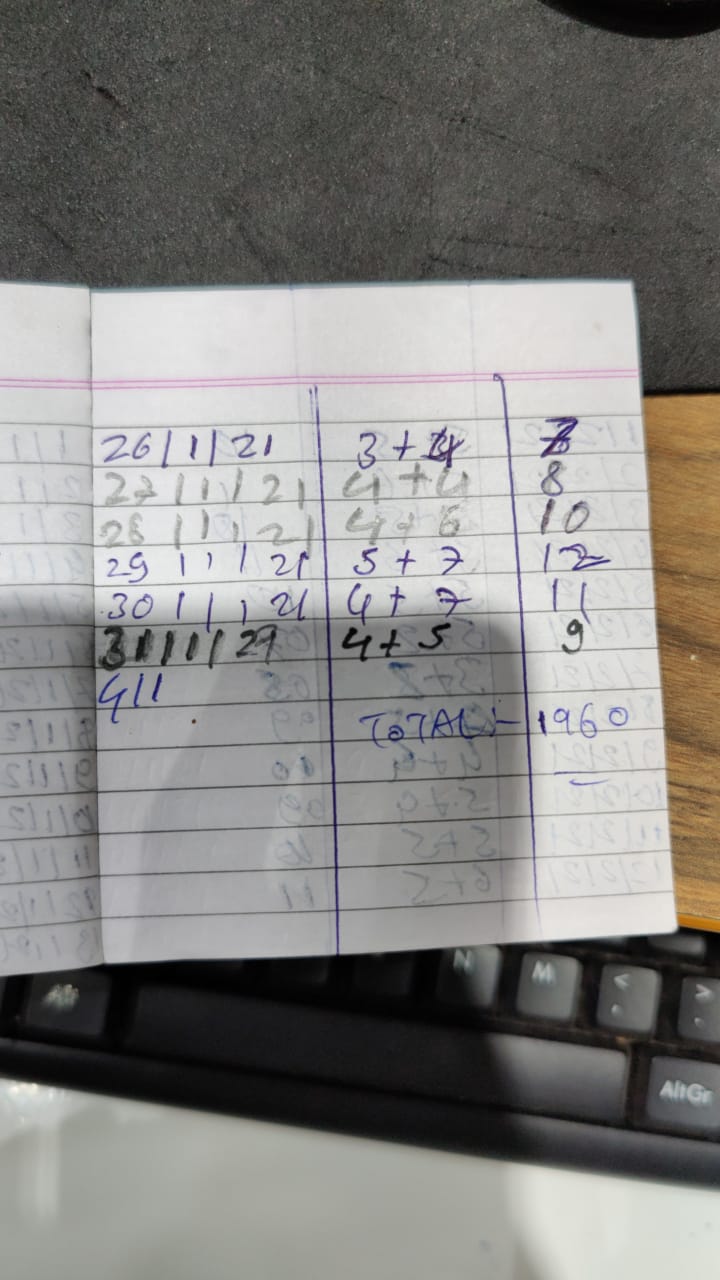 26/1/21 3+4 7
27/1/21 4+4 8
28/1/21 4+6 10
29/1/21 5+7 12
30/1/21 4+7 11
31/1/21 4+5 9
411
TOTAL:- 1960
N M < >
Alt
AltGr